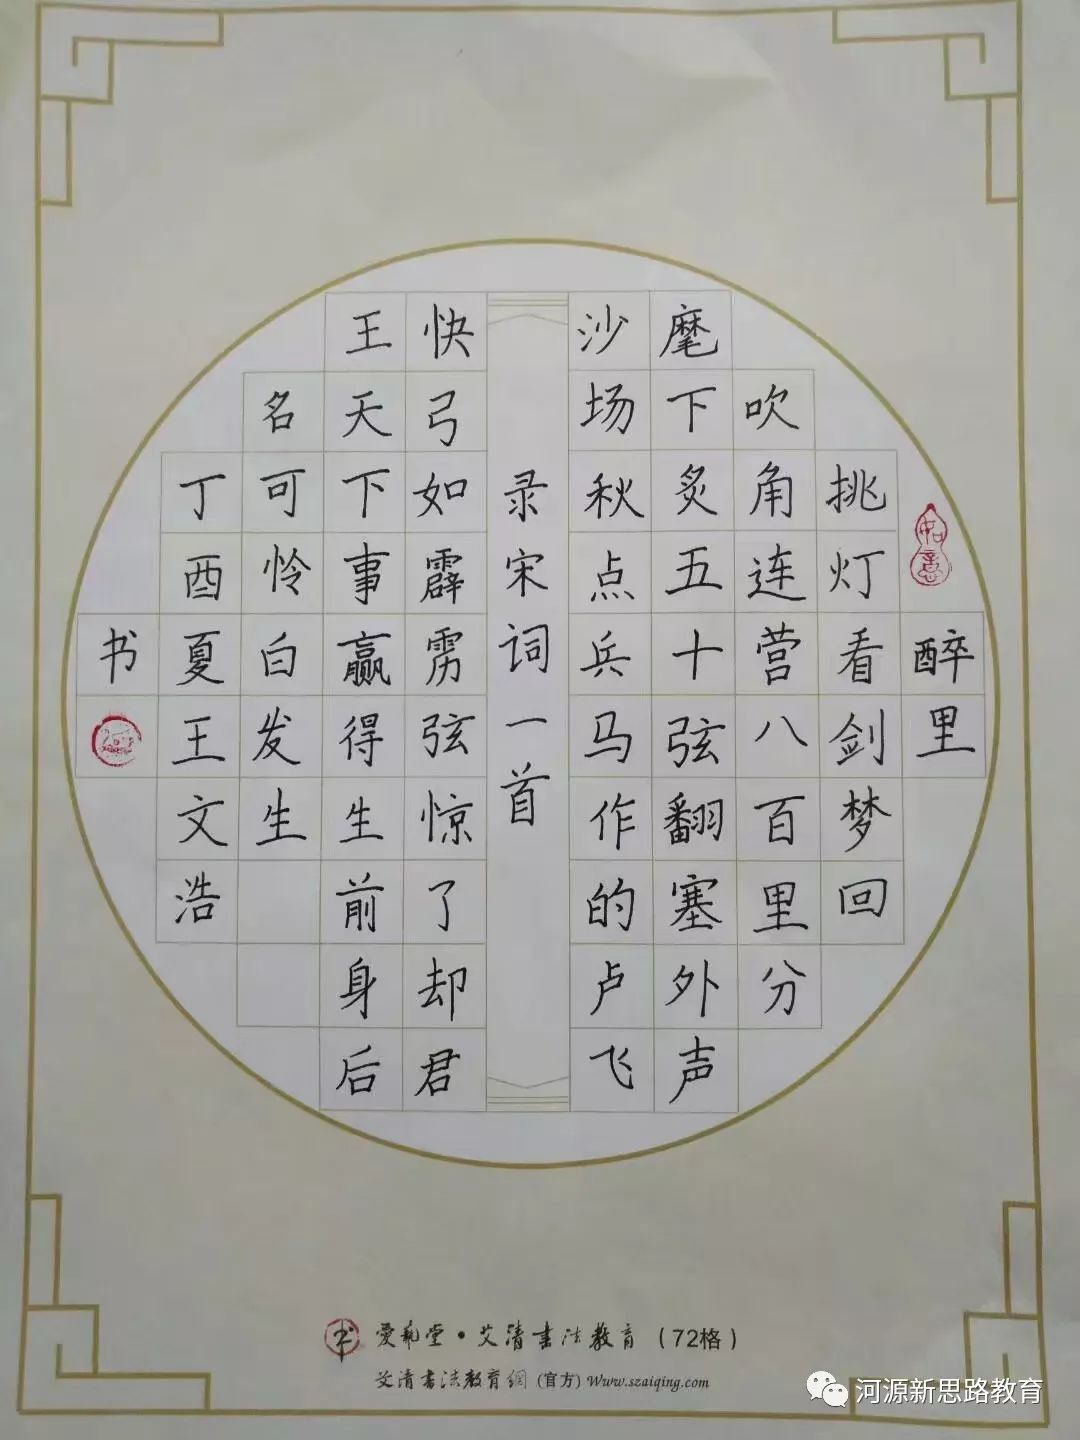 醉里
挑灯看剑梦回
吹角连营八百里分
麾下炙五十弦翻塞外声
沙场秋点兵马作的卢飞
录宋词一首
快弓如霹雳弦惊了却君
王天下事赢得生前身后
名可怜白发生
丁酉夏王文浩
书
如意
爱艺堂·艾清书法教育（72格）
艾清书法教育网（官方）www.szaiqing.com
河源新思路教育